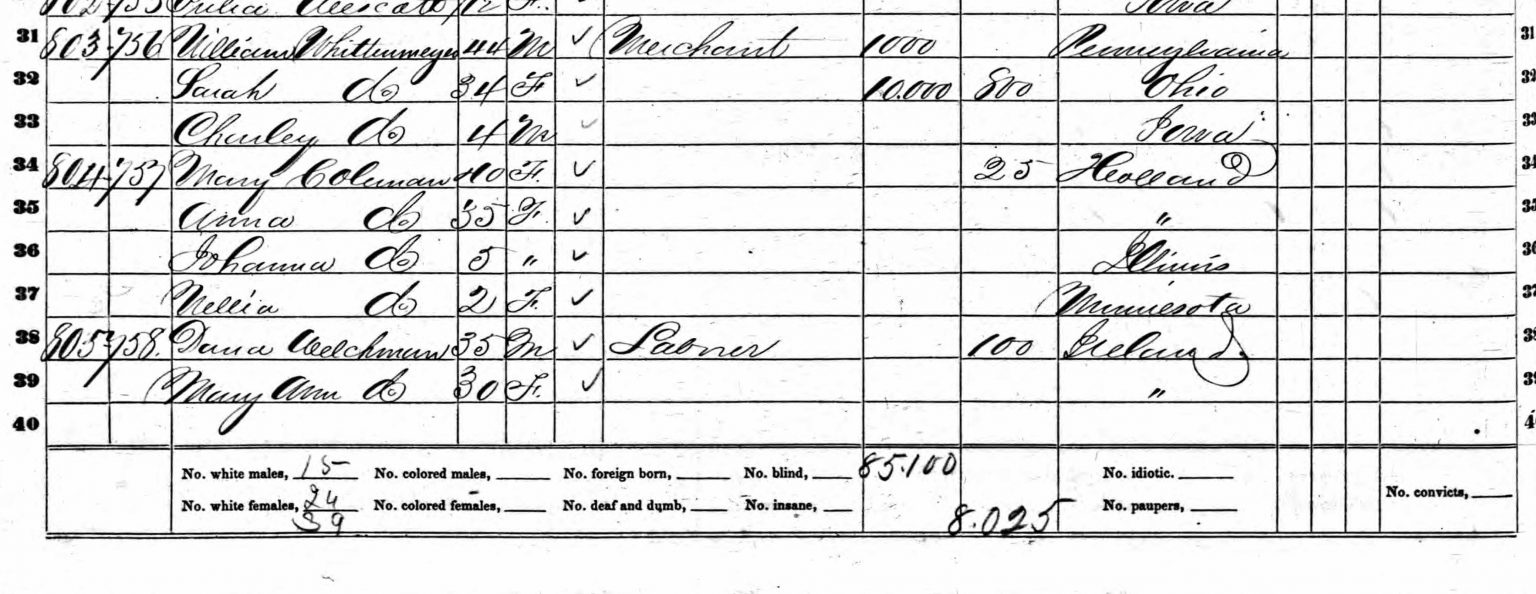 Iowa
31 803 756 William Whittenmeyer 44 M ✓ Merchant 1000 Pennsylvania 31
32 Sarah do 34 F. ✓ 10.000 800 Ohio 32
33 Charley do 4 M ✓ Iowa 33
34 804 757 Mary Coleman 40 F. ✓ 25 Holland 34
35 Anna do 35 F. ✓ " 35
36 Johanna do 5 " ✓ Illinois 36
37 Nellia do 2 F. ✓ Minnesota 37
38 805 758. Dana Welchman 35 M ✓ Labner 100 Ireland. 38
39 Mary Ann do 30 F. ✓ " 39
40
No. white males, 15 No. colored males, No. foreign born, No. blind, 85.100 No. idiotic.
No. white females, 24 No. colored females, No. deaf and dumb, No. insane, No. paupers, No. convicts,
39 8.025